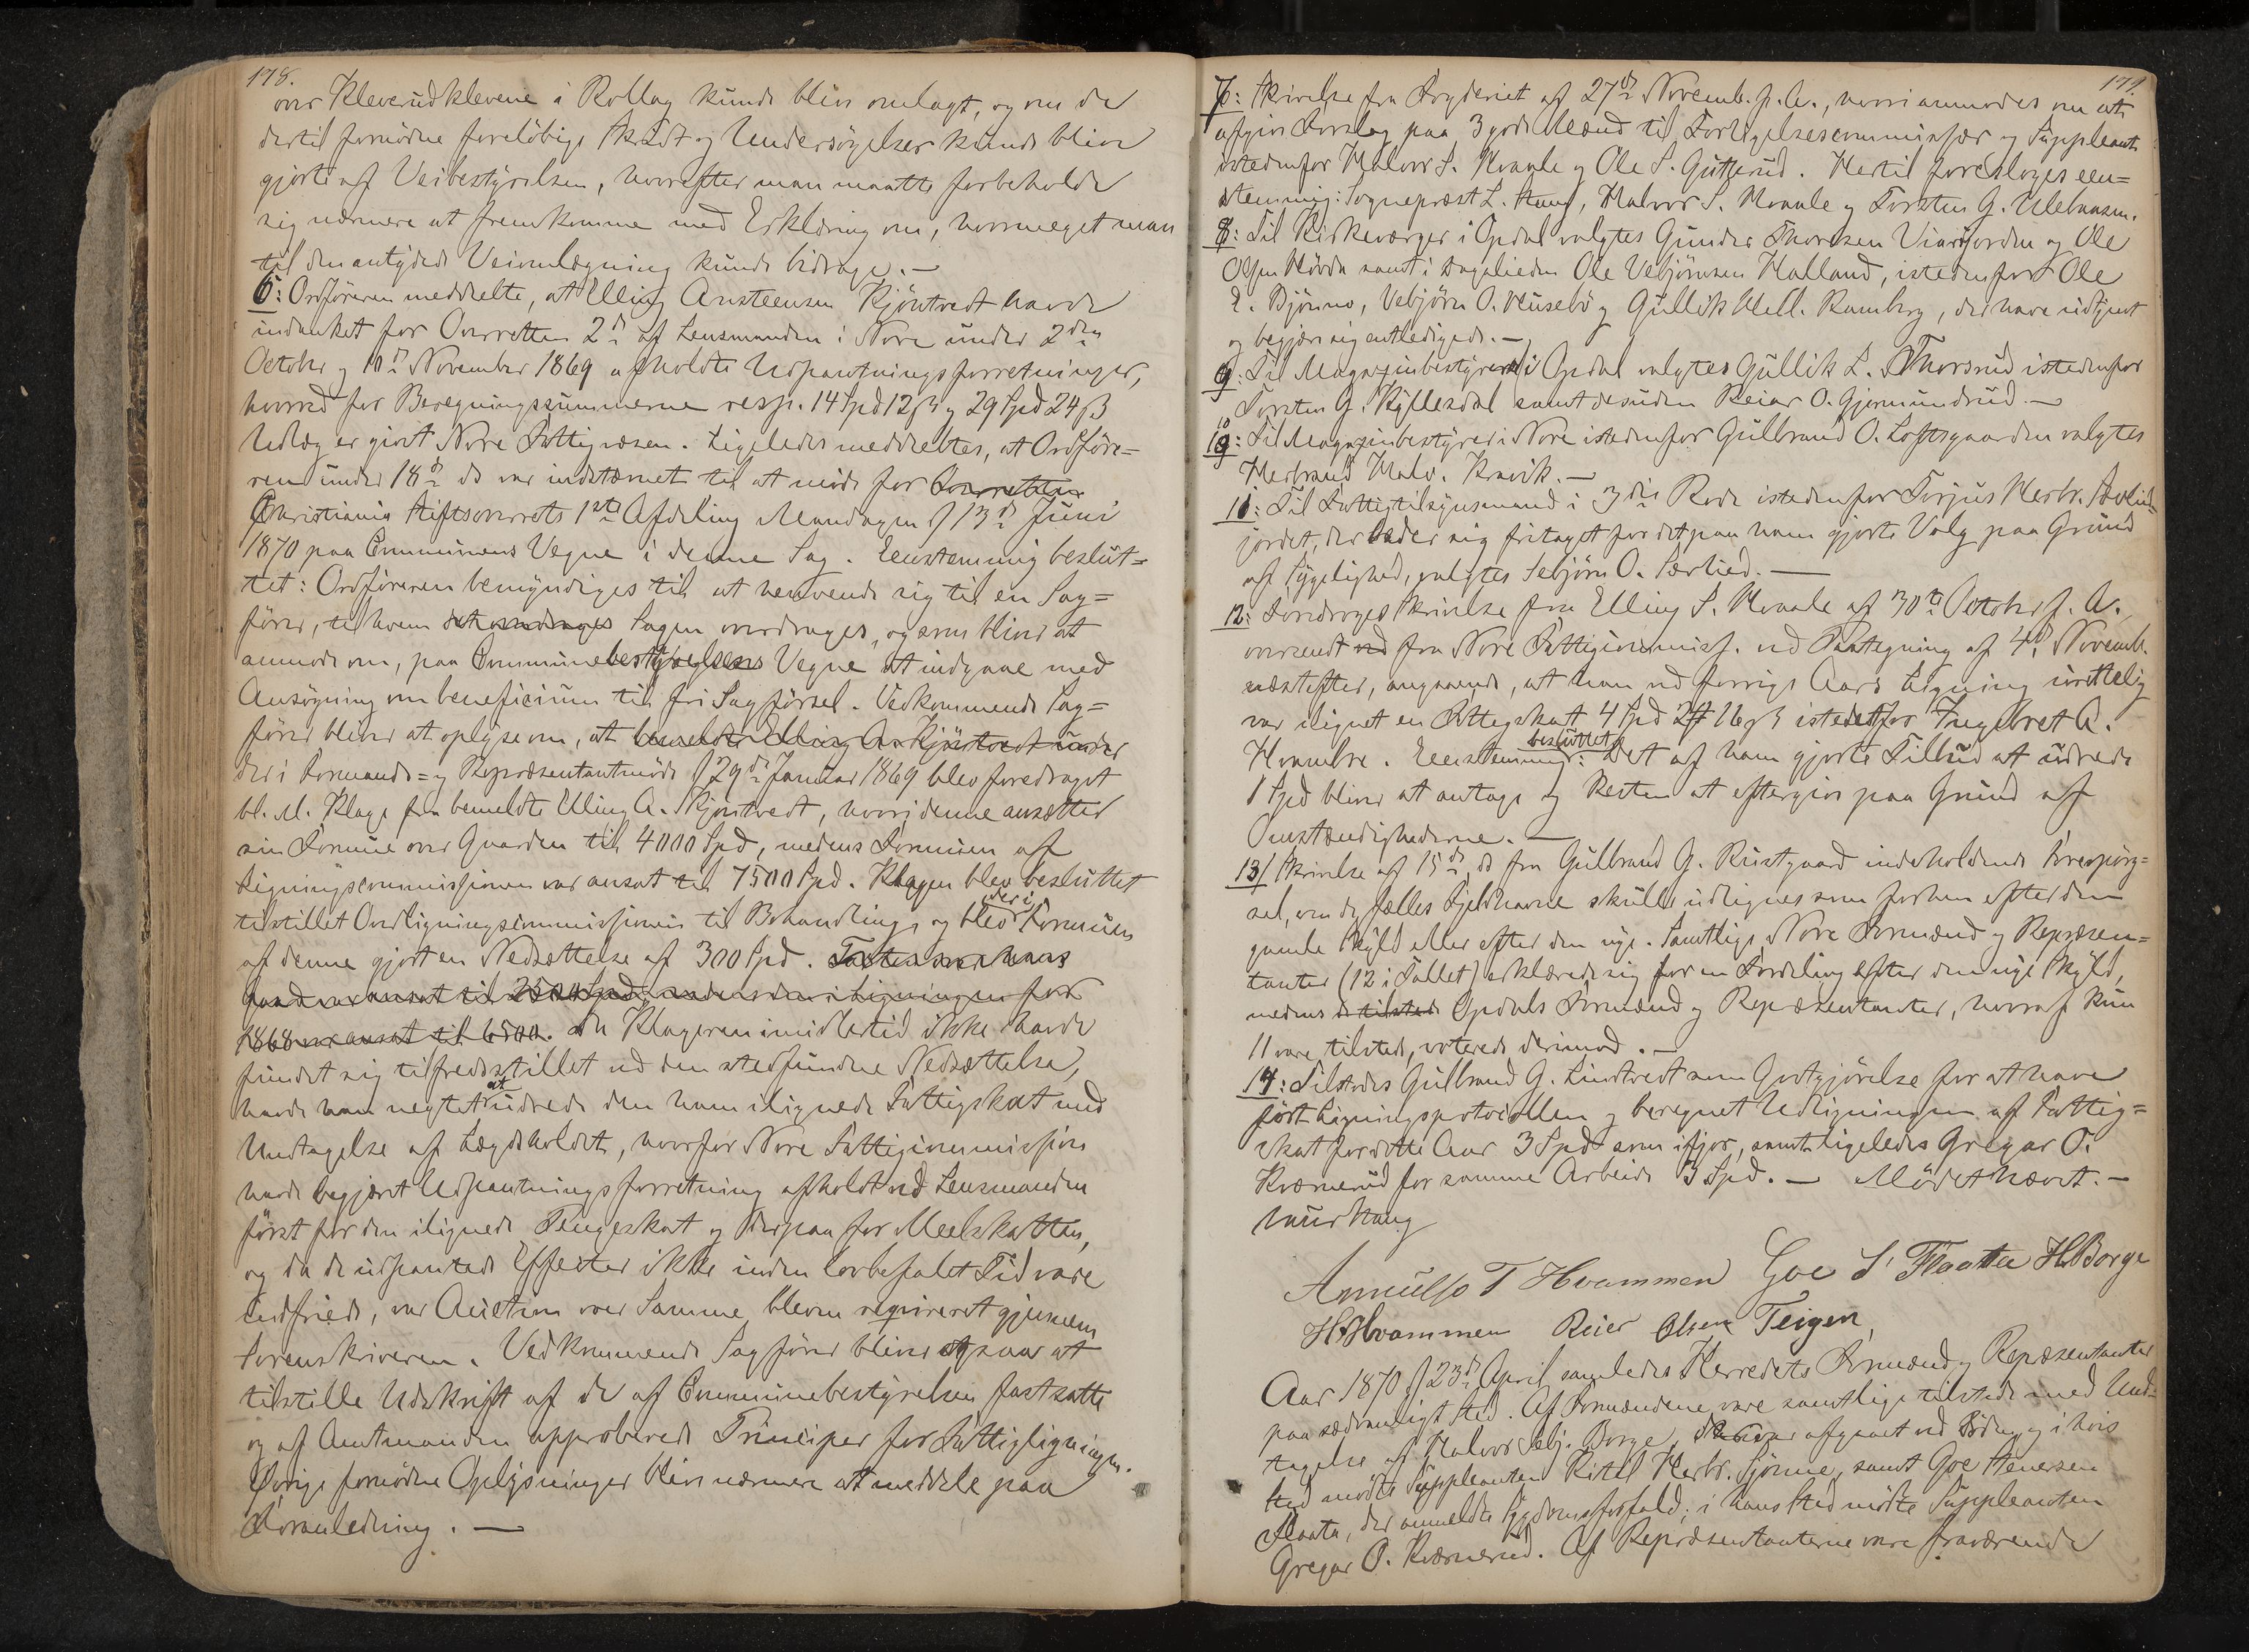 178.
over Kleverudklevene i Rollag kunde blive omlagt, og om de
dertil fornødne foreløbige Skridt og Undersøgelser kunde blive
gjorte af Veibestyrelsen, hvorefter man maatte forbeholde
sig nærmere at fremkomme med Erklæring om, hvormeget man
til den antydede Veiomlægning kunde bidrage. —
6: Ordføreren meddelte, at Elling Ansteensen Kjöntvedt havde
indanket for Overretten 2de af Lensmanden i Nore under 2den
October og 11te November 1869 afholdte Udpantningsforretninger,
hvorved for Beregningssummerne resp. 14 Spd 12 ß og 29 Spd 24 ß
Udlæg er givet Nore Fattigvæsen. Ligeledes meddeltes, at Ordföre=
ren under 18de ds var indstævnet til at møde for Overretten
Christiania Stiftsoverrets 1ste Afdeling Mandagen d 13de Juni
1870 paa Communens Vegne i denne Sag. Eenstemmig beslut=
tet: Ordføreren bemyndiges til at henvende sig til en Sag=
fører, til hvem det overdrages Sagen overdrages, og som bliver at
anmode om, paa Communebestyrelsens Vegne at indgaae med
Ansøgning om beneficium til fri Sagførsel. Vedkommende Sag=
fører bliver at oplyse om, at bemeldte Elling A. Kjöntvedt under
der i Formands= og Repræsentantmøde d 29de Januar 1869 blev foredraget
bl. A. Klage fra bemeldte Elling A. Kjöntvedt, hvori denne ansætter
sin Formue over Gaarden til 4000 Spd, medens Formuen af
Ligningscommissionen var ansat til 7500 Spd. Klagen blev besluttet
tilstillet Overligningscommissionen til Behandling, og blev deri Formuen
af denne gjort en Nedsættelse af 300 Spd. Taxten over hans
Gaard var ansat til 2500 Spd, medens den i Ligningen for
1868 var ansat til 6500. Da Klageren imidlertid ikke havde
fundet sig tilfredsstillet ved den stedfundne Nedsættelse,
havde han negtet at udrede den ham ilignede Fattigskat med
Undtagelse af Lægdsholdet, hvorfor Nore Fattigcommission
havde begjæret Udpantningsforretning afholdt ved Lensmanden
først for den ilignede Pengeskat og derpaa for Meelskatten,
og da de udpantede Effecter ikke inden lovbefalet Tid vare
indfriede, var Auction over Samme bleven reqvireret gjennem
Sorenskriveren. Vedkommende Sagfører bliver ogsaa at
tilstille Udskrift af de af Communebestyrelsen fastsatte
og af Amtmanden approberede Principer for Fattigligningen.
Øvrige fornødne Oplysninger blive nærmere at meddele paa
Foranledning. —
179.
7: Skrivelse fra Fogderiet af 27de Novemb. f. A., hvori anmodes om at
afgive Forslag paa 3 gode Mænd til Forligelsescommissær og Suppleant
istedenfor Halvor S. Hvaale og Ole S. Gutterud. Hertil foresloges een=
stemmig: Sognepræst L. Haug, Halvor S. Hvaale og Torsten G. Ulebaasen.
8: Til Kirkeværger i Opdal valgtes Gunder Thoresen Viersjorden og Ole
Olsen Hövda samt i Dagalieden Ole Vebjörnsen Halland, istedenfor Ole
E. Björnno, Vebjörn O. Husebö og Gullik Hell. Ramberg, der have udtjent
og begjære sig entledigede. —
9: Til Magazinbestyrer i Opdal valgtes Gullik L. Thorsrud istedenfor
Torsten G. Kyllesdal samt desuden Reiar O. Gjermundrud. —
10: Til Magazinbestyrer i Nore istedenfor Gulbrand O. Loftsgaarden valgtes
Herbrand Halv. Kravik. —
11: Til Fattigtilsynsmand i 3die Rode istedenfor Torjus Herbr.
jordet, der beder sig fritaget for det paa ham gjorte Valg paa Grund
af Sygelighed, valgtes Sebjörn O. Sørlied. —
12: Foredroges Skrivelse fra Elling S. Hvaale af 30te October f. A.
oversendt fra Nore Fattigcommiss. ved Paategning af 4de Novemb.
næstefter, angaaende, at han ved forrige Aars Ligning urettelig
var ilignet en Fattigskat 4 Spd 2 ort istedetfor Ingebret A.
Hvambre. Eenstemmig besluttet: Det af ham gjorte Tilbud at udrede
1 Spd bliver at antage og Resten at eftergive paa Grund af
Omstændighederne. —
13/ Skrivelse af 15de ds fra Gulbrand G. Rustgaard indeholdende Forespørg=
sel, om de fælles Fjeldhavne skulle udlignes som forhen efter den
gamle Skyld eller efter den nye. Samtlige Nore Formænd og Repræsen=
tanter (12 i Tallet) erklærede sig for en Fordeling efter den nye Skyld,
medens de tilstede Opdals Formænd og Repræsentanter, hvoraf kun
11 vare tilstede, voterede derimod. —
14: Tilstodes Gulbrand G. Lindtvedt som Godtgjørelse for at have
ført Ligningsprotocollen og beregnet Udligningen af Fattig=
skat for dette Aar 3 Spd som ifjor, samt ligeledes Gregar O.
Kværnerud for samme Arbeide 3 Spd. — Mödet hævet. —
Laur Haug
T Hvammen Goe S Flaata H Borge
H Hvammen Reier Olsen Teigen,
Aar 1870 d 23de April samledes Herredets Formænd og Repræsentanter
paa sædvanligt Sted. Af Formændene vare samtlige tilstede med Und=
tagelse af Halvor Sebj. Borge, der var afgaaet ved Döden, og i hvis
Sted mødte Suppleanten Kittil Herbr. Sjönne, samt Goe Stenersen
Flaata, der anmeldte Sygdomsforfald; i hans Sted mødte Suppleanten
Gregar O. Kværnerud. Af Repræsentanterne vare fraværende